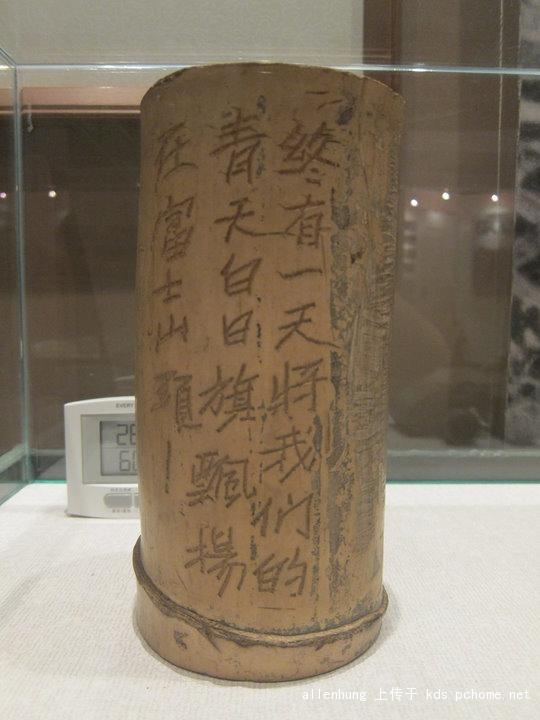 終有一天將我们的
青天白日旗飄揚
在富士山頭
EVERY
allenhung 上传于 kds.pchome.net